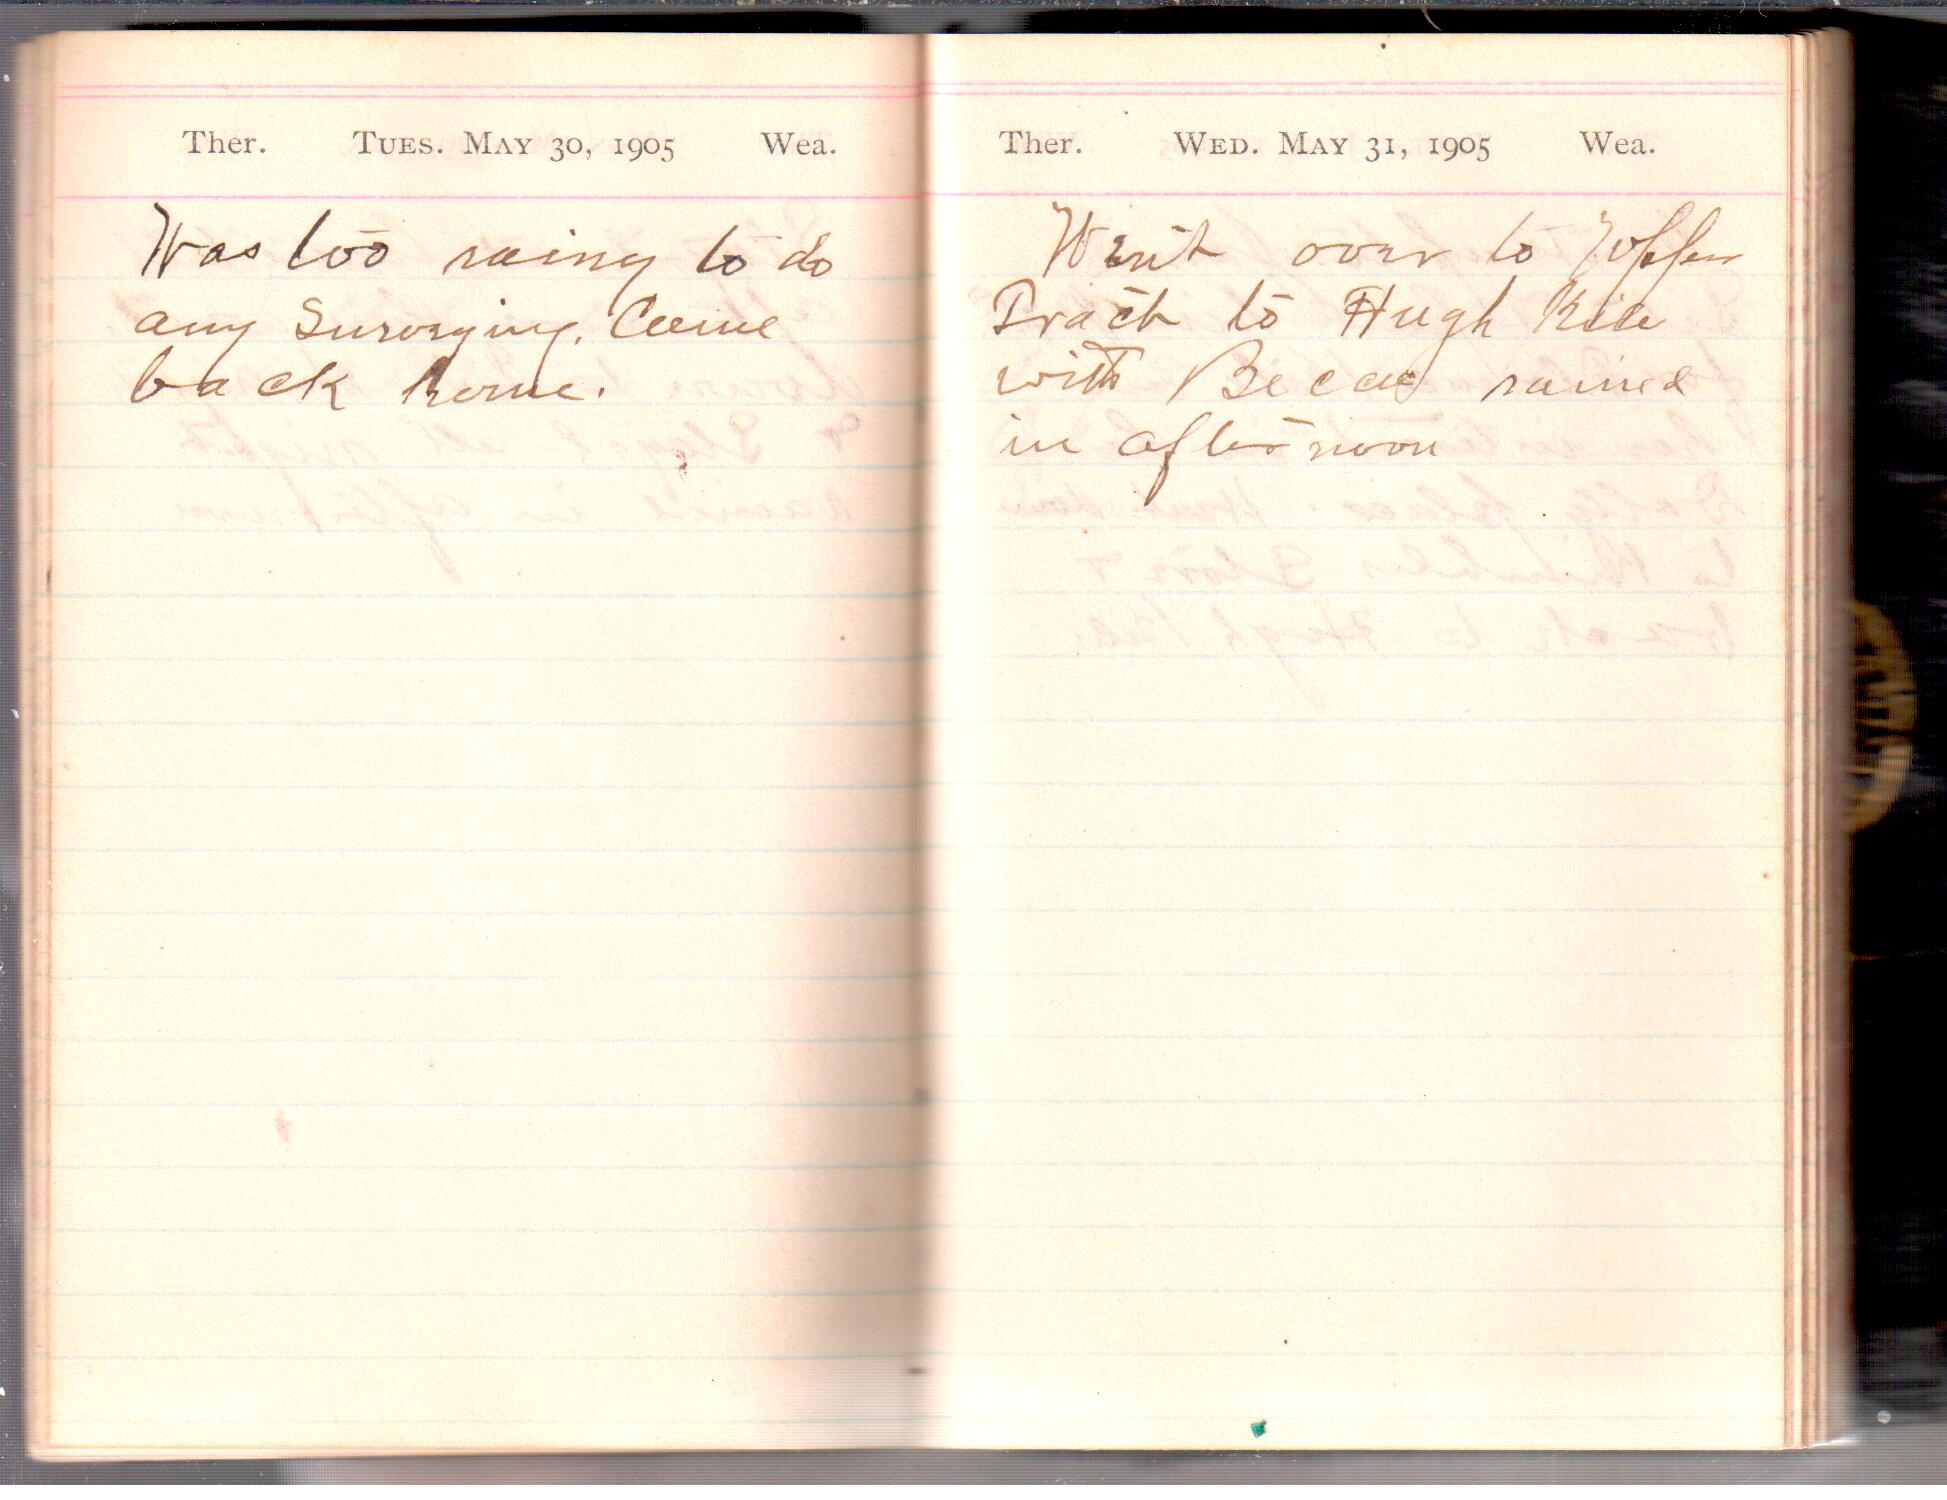 Ther. TUES. MAY 30, 1905 Wea.
Was too rainy to do
any Surveying. Came
back home.
Ther. WED. MAY 31, 1905 Wea.
Went over to
to Hugh
with rained
in afternoon